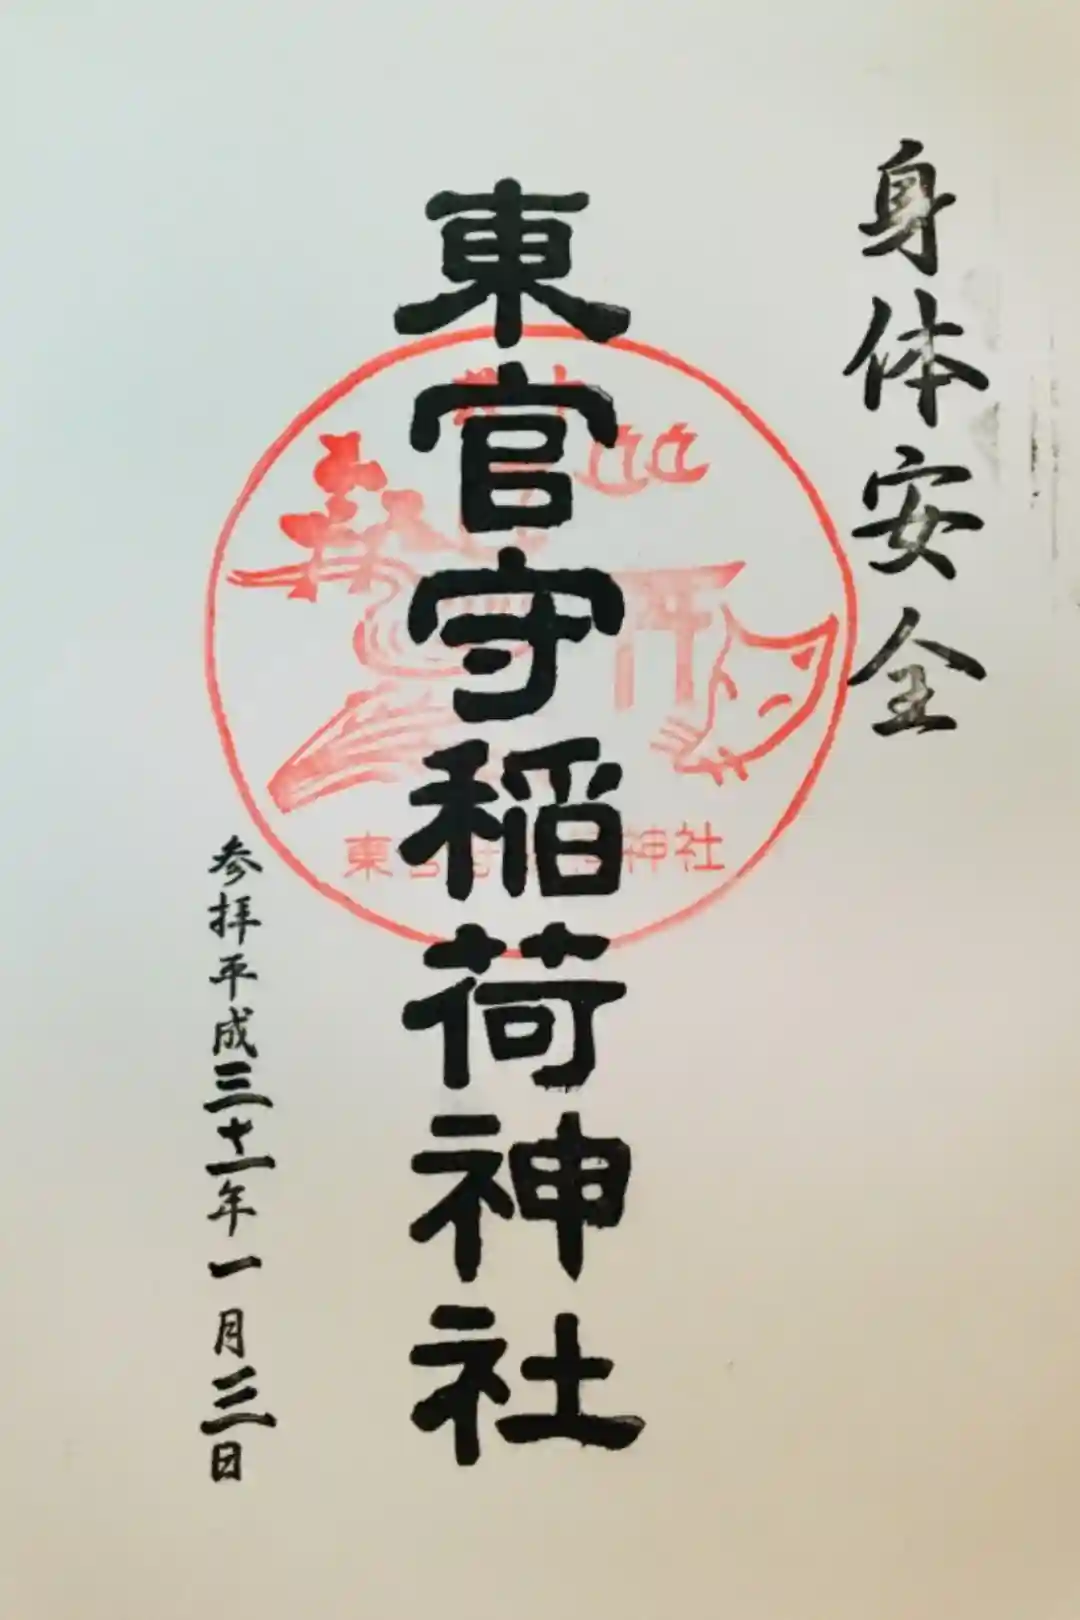 身体安全
東官守稲荷神社
東 神社
参拝平成三十一年一月三日